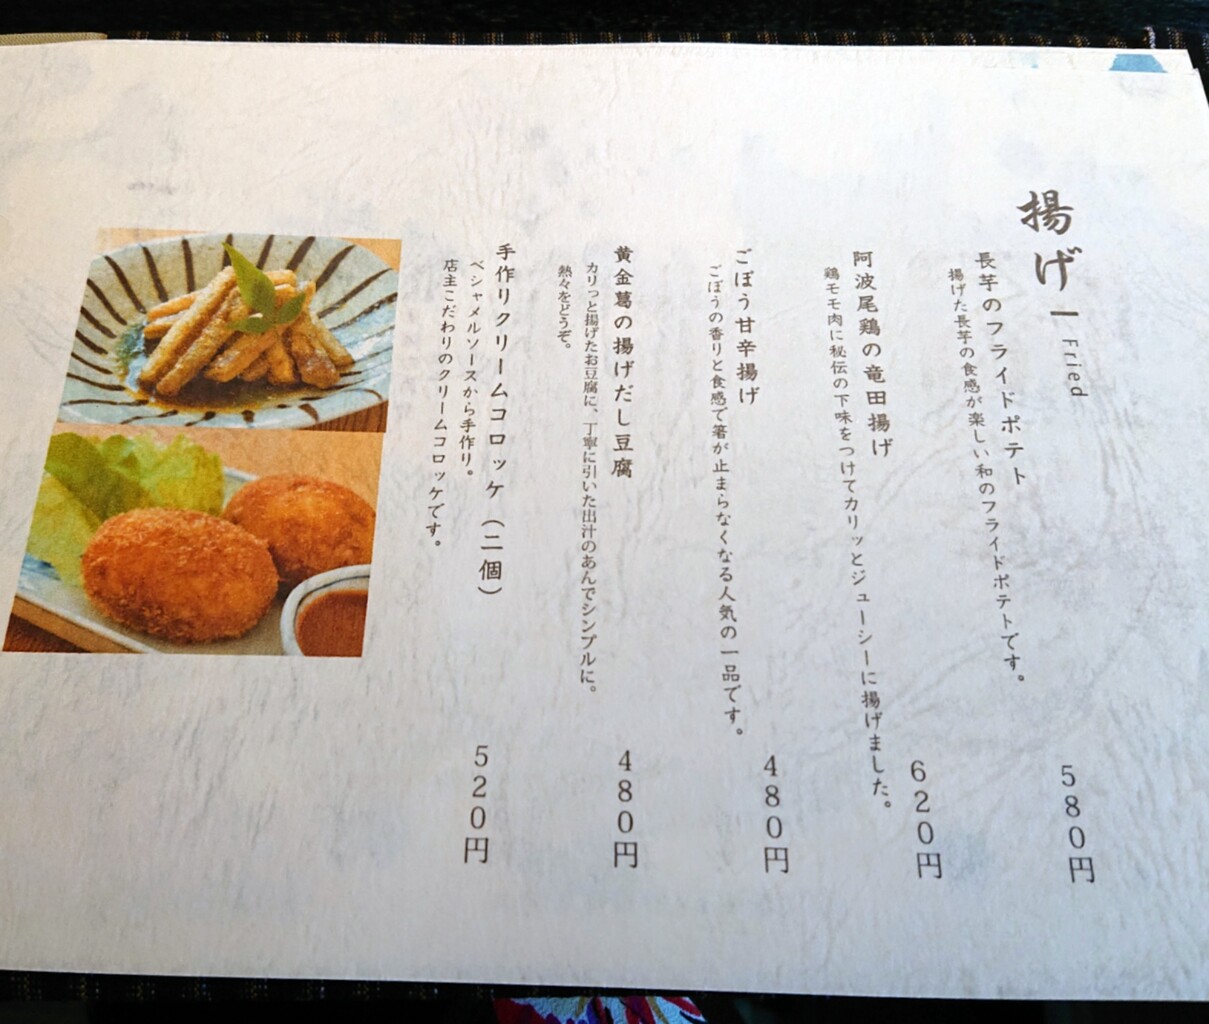 揚げ ー Fried
長芋のフライドポテト
揚げた長芋の食感が楽しい和のフライドポテトです。
580円
阿波尾鶏の竜田揚げ
鶏モモ肉に秘伝の下味をつけてカリッとジューシーに揚げました。
620円
ごぼう甘辛揚げ
ごぼうの香りと食感で箸が止まらなくなる人気の一品です。
480円
黄金葛の揚げだし豆腐
カリっと揚げたお豆腐に、丁寧に引いた出汁のあんでシンプルに。
熱々をどうぞ。
480円
手作りクリームコロッケ（二個）
ベシャメルソースから手作り。
店主こだわりのクリームコロッケです。
520円